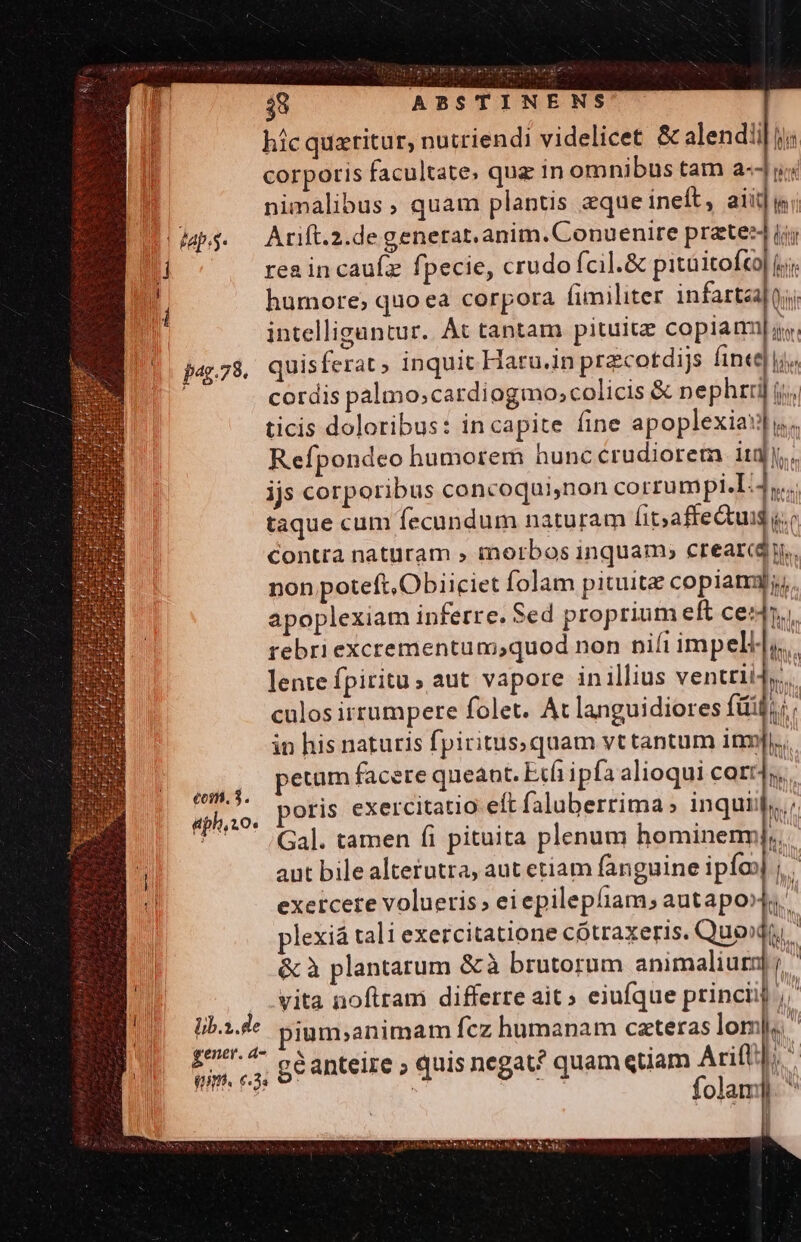 38 ABSTINENS
hîc quæritur, nutriendi videlicet & alendi
corporis facultate, quæ in omnibus tam a-
nimalibus, quam plantis æque ineſt, ait
cap.5. Ariſt.2.de generat.anim. Conuenire præte-
rea in cauſæ ſpecie, crudo ſcil.& pituitoſo
humore, quo ea corpora ſimiliter infarta
intelliguntur. At tantam pituitæ copiam
pag.78. quis ferat, inquit Haru.in præcordijs ſine
cordis palmo, cardiogmo, colicis & nephri
ticis doloribus: in capite ſine apoplexia?
Reſpondeo humorem hunc crudiorem in
ijs corporibus concoqui, non corrumpi. I-
taque cum ſecundum naturam ſit, affectus
contra naturam, morbos inquam, creare
non poteſt. Obiiciet ſolam pituitæ copiam
apoplexiam inferre. Sed proprium eſt ce-
rebri excrementum, quod non niſi impel-
lente ſpiritu, aut vapore in illius ventri-
culos irrumpere ſolet. At languidiores ſūt
in his naturis ſpiritus, quam vt tantum im-
petum facere queant. Etſi ipſa alioqui cor-
com.3.
aph.20. poris exercitatio eſt ſaluberrima, inquit
Gal. tamen ſi pituita plenum hominem,
aut bile alterutra, aut etiam ſanguine ipſo
exercere volueris, ei epilepſiam, aut apo-
plexiā tali exercitatione cōtraxeris. Quod
& à plantarum & à brutorum animalium
vita noſtram differre ait, eiuſque princi-
lib.2.de pium, animam ſcz humanam cæteras lon-
gener. a-
nim. c.3. gè anteire, quis negat? quam etiam Ariſt.
ſolam